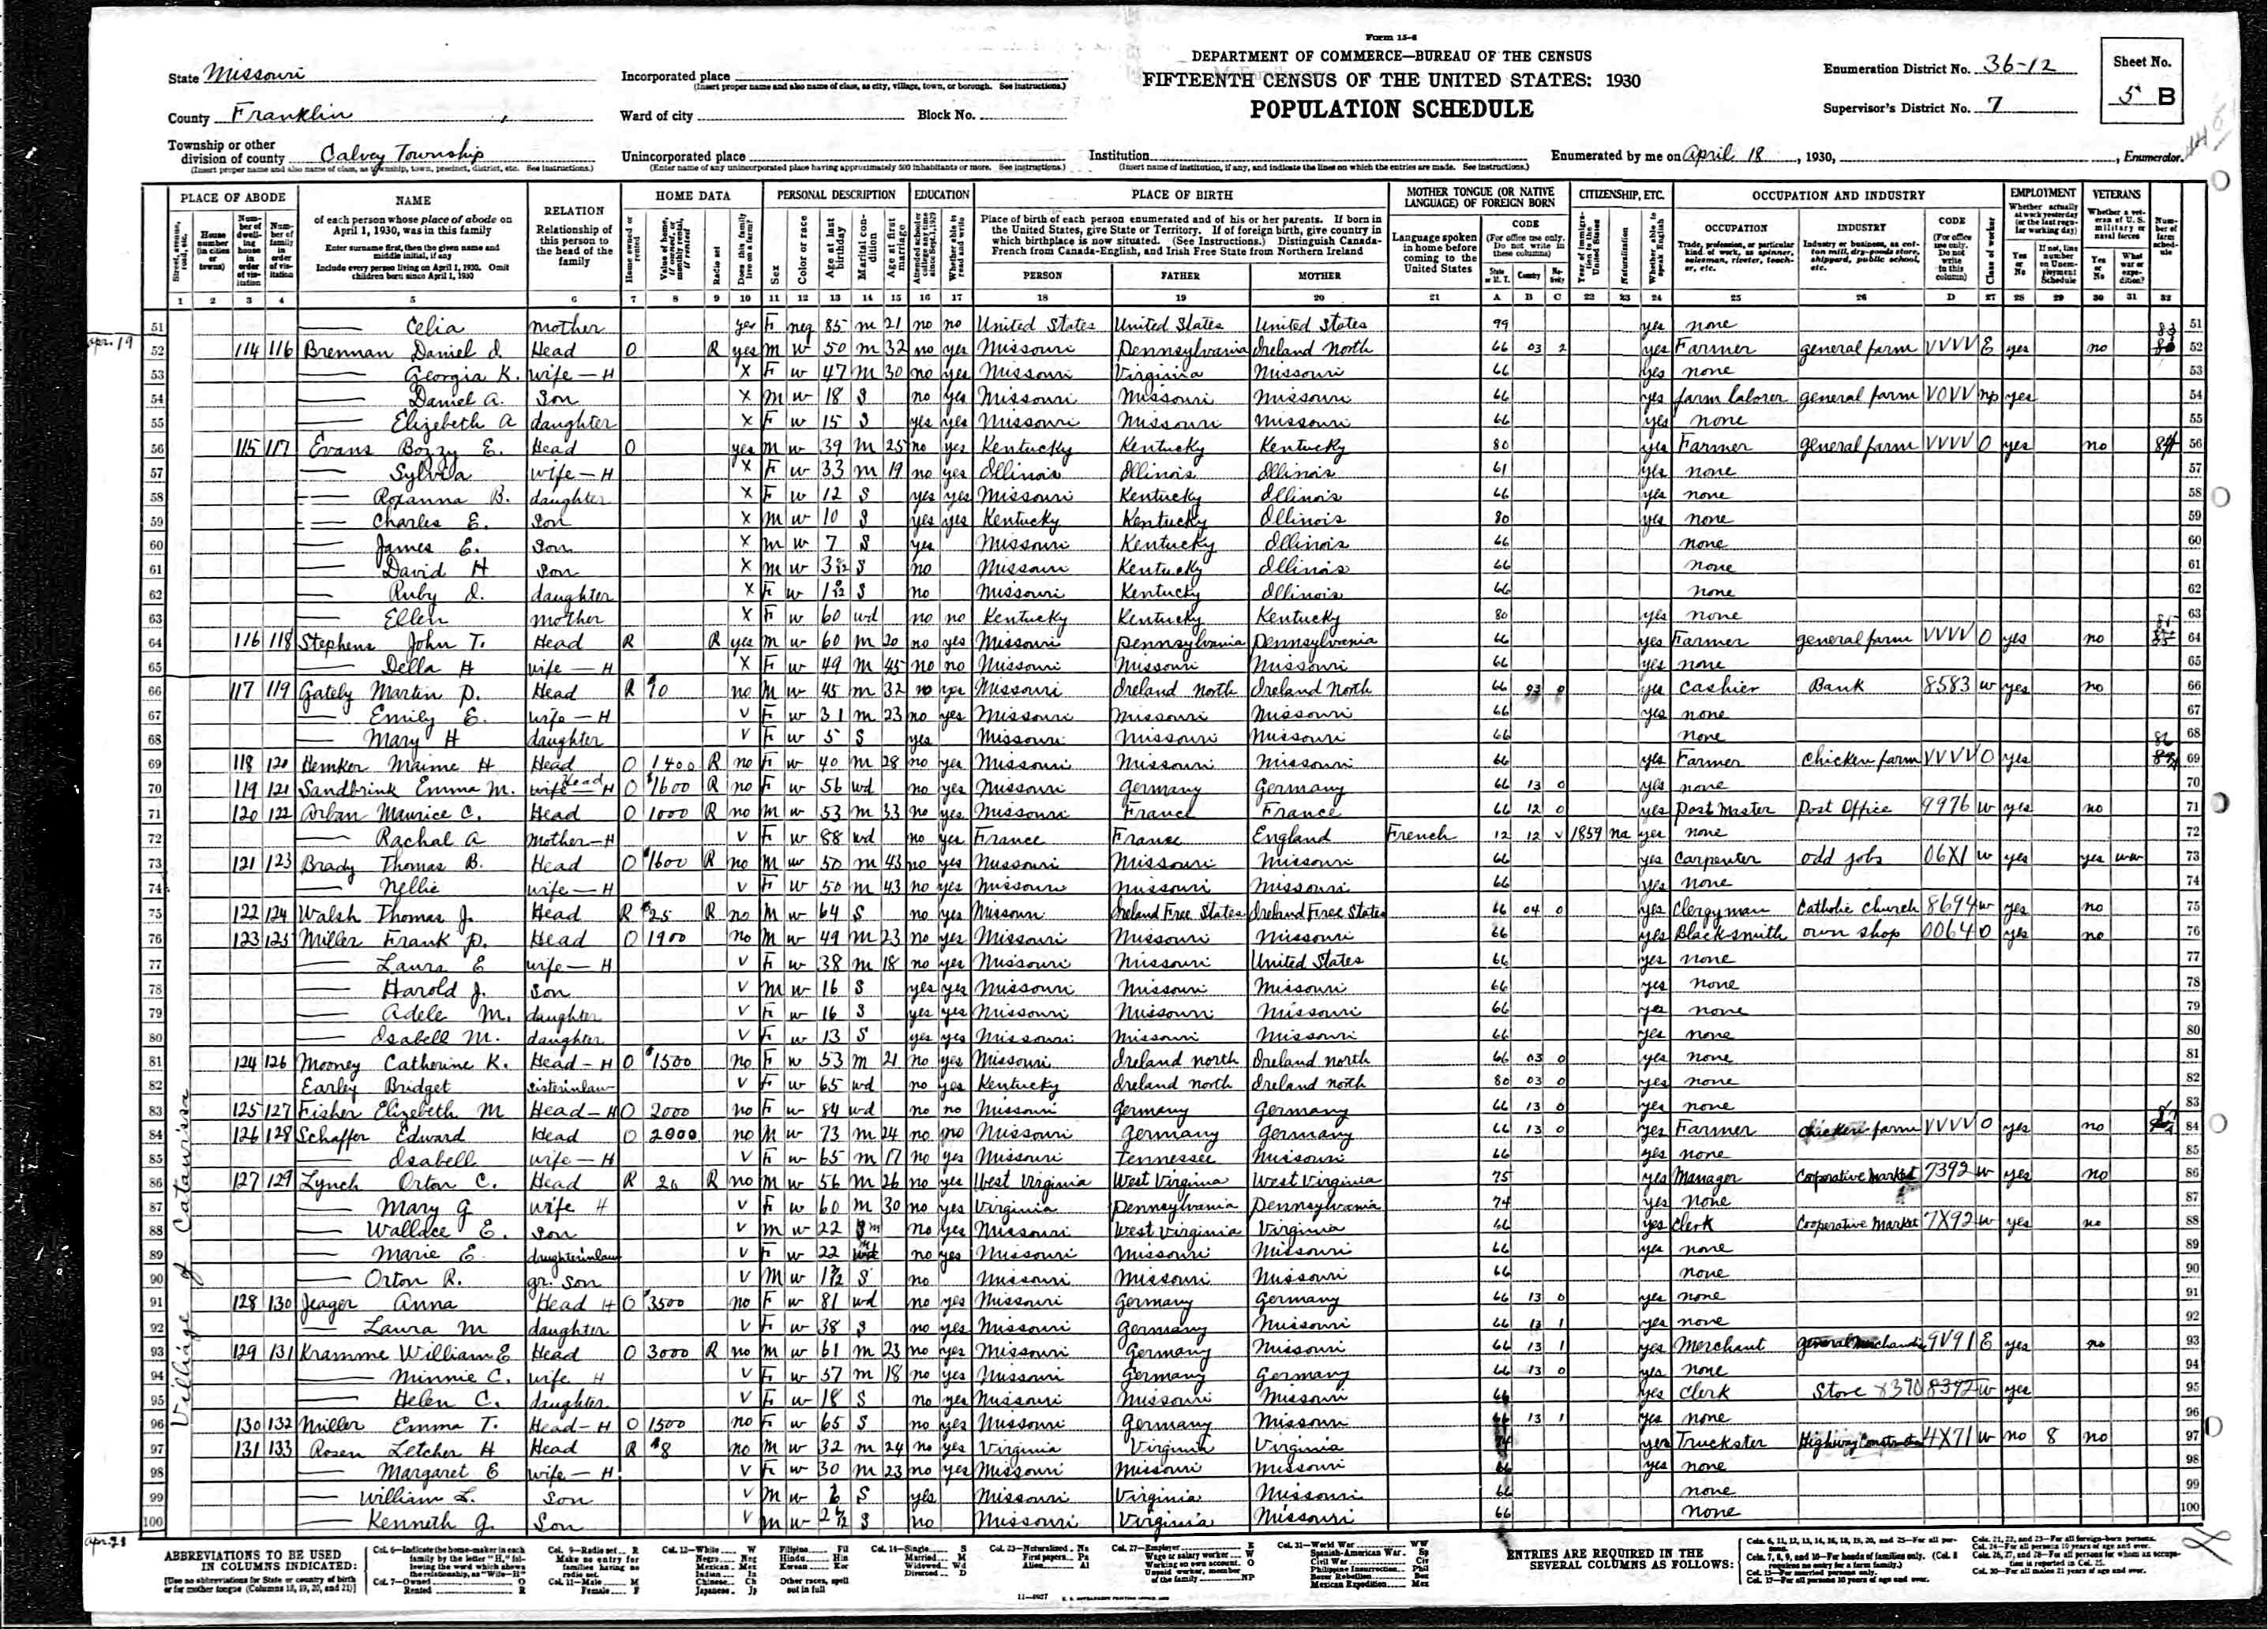 Form 15-6
DEPARTMENT OF COMMERCE—BUREAU OF THE CENSUS
FIFTEENTH CENSUS OF THE UNITED STATES: 1930
POPULATION SCHEDULE
State Missouri
County Franklin
Township or other division of county Calvey Township
(Insert proper name and also name of class, as township, town, precinct, district, etc. See instructions.)
Incorporated place
(Insert proper name and also name of class, as city, village, town, or borough. See instructions.)
Ward of city Block No.
Unincorporated place
(Enter name of any unincorporated place having approximately 500 inhabitants or more. See instructions.)
Institution
(Insert name of institution, if any, and indicate the lines on which the entries are made. See instructions.)
Enumeration District No. 36-12
Supervisor's District No. 7
Sheet No. 5 B
Enumerated by me on April 18, 1930, , Enumerator.
PLACE OF ABODE NAME RELATION HOME DATA PERSONAL DESCRIPTION EDUCATION PLACE OF BIRTH MOTHER TONGUE (OR NATIVE LANGUAGE) OF FOREIGN BORN CITIZENSHIP, ETC. OCCUPATION AND INDUSTRY EMPLOYMENT VETERANS
PERSON FATHER MOTHER
1 2 3 4 5 6 7 8 9 10 11 12 13 14 15 16 17 18 19 20 21 A B C 22 23 24 25 26 D 27 28 29 30 31 32
51 Celia mother yes F neg 85 m 21 no no United States United States United States 99 yes none 51
Apr. 19
52 114 116 Brennan Daniel I. Head O R yes m w 50 m 32 no yes Missouri Pennsylvania Ireland North 66 03 2 yes Farmer general farm VVVV E yes no 52
53 Georgia K. wife—H X F w 47 m 30 no yes Missouri Virginia Missouri 66 yes none 53
54 Daniel A. Son X m w 18 S no yes Missouri Missouri Missouri 66 yes farm laborer general farm VOVV np yes 54
55 Elizebeth A daughter X F w 15 S yes yes Missouri Missouri Missouri 66 yes none 55
56 115 117 Evans Bozzy E. Head O yes m w 39 m 25 no yes Kentucky Kentucky Kentucky 80 yes Farmer general farm VVVV O yes no 84 56
57 Sylvia wife—H X F w 33 m 19 no yes Illinois Illinois Illinois 61 yes none 57
58 Roxanna B. daughter X F w 12 S yes yes Missouri Kentucky Illinois 66 yes none 58
59 Charles E. Son X m w 10 S yes yes Kentucky Kentucky Illinois 80 yes none 59
60 James E. Son X m w 7 S yes Missouri Kentucky Illinois 66 none 60
61 David H Son X m w S no Missouri Kentucky Illinois 66 none 61
62 Ruby I. daughter X F w S no Missouri Kentucky Illinois 66 none 62
63 Ellen mother X F w 60 wd no no Kentucky Kentucky Kentucky 80 yes none 63
64 116 118 Stephens John T. Head R R yes m w 60 m 20 no yes Missouri Pennsylvania Pennsylvania 66 yes Farmer general farm VVVV O yes no 85 64
65 Della H wife—H X F w 49 m 45 no no Missouri Missouri Missouri 66 yes none 65
66 117 119 Gately Martin P. Head R $10 no m w 45 m 32 no yes Missouri Ireland North Ireland North 66 03 0 yes Cashier Bank 8583 w yes no 66
67 Emily E. wife—H V F w 31 m 23 no yes Missouri Missouri Missouri 66 yes none 67
68 Mary H daughter V F w 5 S yes Missouri Missouri Missouri 66 none 68
69 118 120 Hemker Maime H Head O 1400 R no F w 40 m 28 no yes Missouri Missouri Missouri 66 yes Farmer Chicken farm VVVV O yes 86 69
70 119 121 Sandbrink Emma M. Head H O $1600 R no F w 56 wd no yes Missouri Germany Germany 66 13 0 yes none 70
71 120 122 Arban Maurice C. Head O 1000 R no m w 53 m 33 no yes Missouri France France 66 12 0 yes Post Master Post Office 9976 w yes no 71
72 Rachal A mother—H V F w 88 wd no yes France France England French 12 12 V 1859 na yes none 72
73 121 123 Brady Thomas B. Head O $1600 R no m w 50 m 43 no yes Missouri Missouri Missouri 66 yes Carpenter odd jobs 06X1 w yes yes ww 73
74 Nellie wife—H V F w 50 m 43 no yes Missouri Missouri Missouri 66 yes none 74
75 122 124 Walsh Thomas J. Head R $25 R no m w 64 S no yes Missouri Ireland Free States Ireland Free States 66 04 0 yes Clergyman Catholic Church 8694 w yes no 75
76 123 125 Miller Frank P. Head O 1900 no m w 49 m 23 no yes Missouri Missouri Missouri 66 yes Blacksmith own shop 0064 O yes no 76
77 Laura E wife—H V F w 38 m 18 no yes Missouri Missouri United States 66 yes none 77
78 Harold J. Son V m w 16 S yes yes Missouri Missouri Missouri 66 yes none 78
79 Adele M. daughter V F w 16 S yes yes Missouri Missouri Missouri 66 yes none 79
80 Isabell M. daughter V F w 13 S yes yes Missouri Missouri Missouri 66 yes none 80
81 124 126 Mooney Catherine K. Head—H O $1500 no F w 53 m 21 no yes Missouri Ireland north Ireland north 66 03 0 yes none 81
82 Earley Bridget sisterinlaw V F w 65 wd no yes Kentucky Ireland north Ireland north 80 03 0 yes none 82
83 125 127 Fisher Elizebeth M Head—H O 2000 no F w 84 wd no no Missouri Germany Germany 66 13 0 yes none 83
84 126 128 Schaffer Edward Head O 2000 no m w 73 m 24 no no Missouri Germany Germany 66 13 0 yes Farmer chicken farm VVVV O yes no 84
85 Isabell wife—H V F w 65 m 17 no yes Missouri Tennessee Missouri 66 yes none 85
86 127 129 Lynch Orton C. Head R 20 R no m w 56 m 26 no yes West Virginia West Virginia West Virginia 75 yes Manager Cooperative Market 7392 w yes no 86
87 Mary G wife H V F w 60 m 30 no yes Virginia Pennsylvania Pennsylvania 74 yes none 87
88 Wallace E. Son V m w 22 m no yes Missouri West Virginia Virginia 66 yes Clerk Cooperative Market 7X92 w yes no 88
89 Marie E. daughterinlaw V F w 22 m no yes Missouri Missouri Missouri 66 yes none 89
90 Orton R. gr. son V m w S no Missouri Missouri Missouri 66 none 90
91 128 130 Jeager Anna Head H O $3500 no F w 81 wd no yes Missouri Germany Germany 66 13 0 yes none 91
92 Laura M daughter V F w 38 S no yes Missouri Germany Missouri 66 13 1 yes none 92
93 129 131 Kramme William E Head O 3000 R no m w 61 m 23 no yes Missouri Germany Missouri 66 13 1 yes Merchant 9V91 E yes no 93
94 Minnie C. wife H V F w 57 m 18 no yes Missouri Germany Germany 66 13 0 yes none 94
95 Helen C. daughter V F w 18 S no yes Missouri Missouri Missouri 66 yes Clerk Store 8392 w yes 95
96 130 132 Miller Emma T. Head—H O 1500 no F w 65 S no yes Missouri Germany Missouri 66 13 1 yes none 96
97 131 133 Rosen Letcher H Head R $8 no m w 32 m 24 no yes Virginia Virginia Virginia 74 yes Truckster Highway Construction 4X71 w no 8 no 97
98 Margaret E wife—H V F w 30 m 23 no yes Missouri Missouri Missouri 66 yes none 98
99 William L. Son V m w 6 S yes Missouri Virginia Missouri 66 none 99
100 Kenneth G. Son V m w S no Missouri Virginia Missouri 66 none 100
Village of Catawissa
ABBREVIATIONS TO BE USED IN COLUMNS INDICATED:
[Use no abbreviations for State or country of birth or for mother tongue (Columns 18, 19, 20, and 21)]
ENTRIES ARE REQUIRED IN THE SEVERAL COLUMNS AS FOLLOWS: